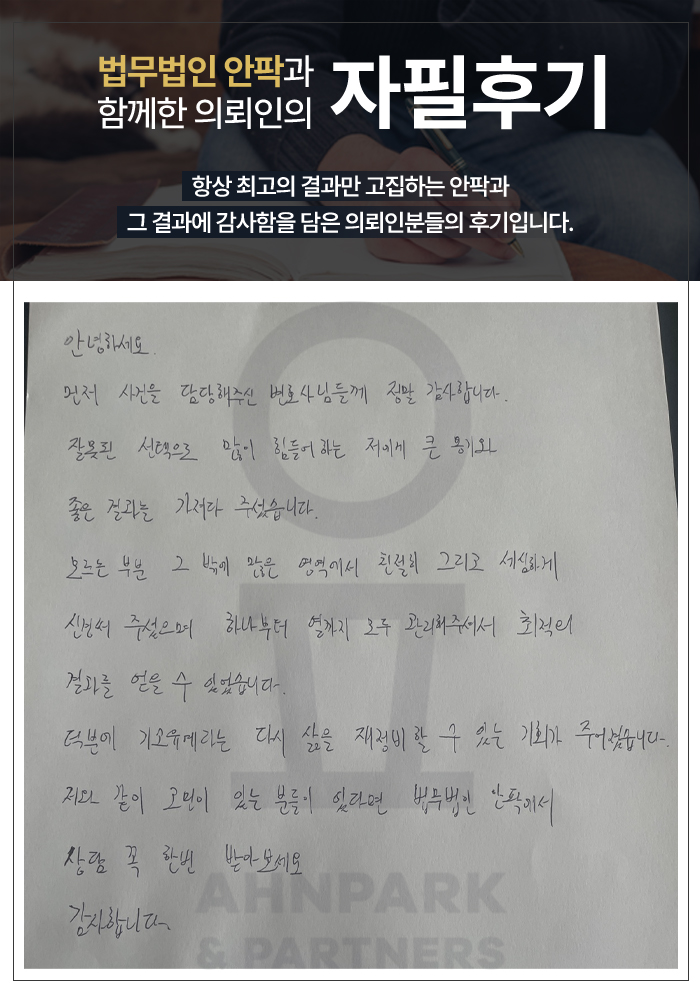 법무법인 안팍과
함께한 의뢰인의
자필후기
항상 최고의 결과만 고집하는 안팍과
그 결과에 감사함을 담은 의뢰인분들의 후기입니다.
안녕하세요.
먼저 사건을 담당해주신 변호사님들께 정말 감사합니다.
잘못된 선택으로 많이 힘들어하는 저에게 큰 용기와
좋은 결과를 가져다 주셨습니다.
모르는 부분 그 밖에 많은 영역에서 친절히 그리고 세심하게
신경써 주셨으며 하나부터 열까지 모두 관리해주셔서 최적의
결과를 얻을 수 있었습니다.
덕분에 기소유예라는 다시 삶을 재정비 할 수 있는 기회가 주어졌습니다.
저와 같이 고민이 있는 분들이 있다면 법무법인 안팍에서
상담 꼭 한번 받아보세요
감사합니다.
AHNPARK
& PARTNERS